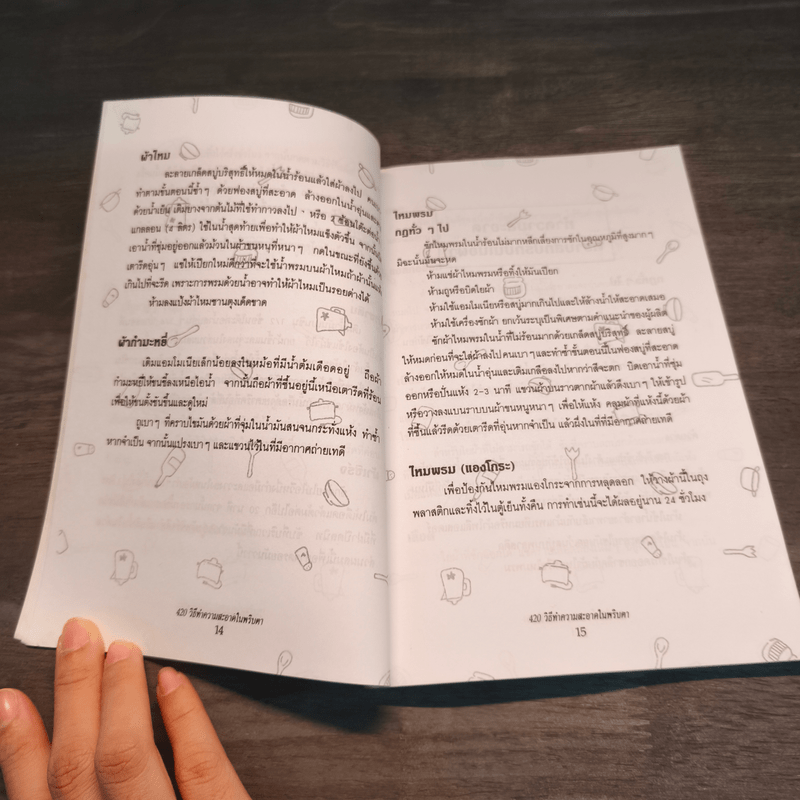 ผ้าไหม
ละลายเกล็ดสบู่บริสุทธิ์ให้หมดในน้ำร้อนแล้วใส่ผ้าลงไป คน
ทำตามขั้นตอนนี้ซ้ำๆ ด้วยฟองสบู่ที่สะอาด ล้างออกในน้ำอุ่นและ
ด้วยน้ำเย็น เติมยางจากต้นไม้ที่ใช้ทำกาวลงไป หรือ 2 ช้อนโต๊ะต่อ
แกลลอน (4 ลิตร) ใช้ในน้ำสุดท้ายเพื่อทำให้ผ้าไหมแข็งตัวขึ้น จากนั้น
เอาน้ำที่ชุ่มอยู่ออกแล้วม้วนในผ้าขนหนูที่หนาๆ กดในขณะที่ยังชื้นด้วย
เตารีดอุ่นๆ แช่ให้เปียกใหม่ดีกว่าที่จะใช้น้ำพรมบนผ้าไหมถ้าผ้านั้นแห้ง
เกินไปที่จะรีด เพราะการพรมด้วยน้ำอาจทำให้ผ้าไหมเป็นรอยด่างได้
ห้ามลงแป้งผ้าไหมชานตุงเด็ดขาด
ผ้ากำมะหยี่
เติมแอมโมเนียเล็กน้อยลงในหม้อที่มีน้ำต้มเดือดอยู่ ถือผ้า
กำมะหยี่ให้ขนชี้ลงเหนือไอน้ำ จากนั้นถือผ้าที่ชื้นอยู่นี้เหนือเตารีดที่ร้อน
เพื่อให้ขนตั้งชันขึ้นและดูใหม่
ถูเบาๆ ที่คราบไขมันด้วยผ้าที่จุ่มในน้ำมันสนจนกระทั่งแห้ง ทำซ้ำ
หากจำเป็น จากนั้นแปรงเบาๆ และแขวนไว้ในที่มีอากาศถ่ายเทดี
420 วิธีทำความสะอาดในพริบตา
14
ไหมพรม
กฎทั่ว ๆ ไป
ซักไหมพรมในน้ำร้อนไม่มากหลีกเลี่ยงการซักในอุณหภูมิที่สูงมากๆ
มิฉะนั้นมันจะหด
ห้ามแช่ผ้าไหมพรมหรือทิ้งให้มันเปียก
ห้ามถูหรือบิดใยผ้า
ห้ามใช้แอมโมเนียหรือสบู่มากเกินไปและให้ล้างน้ำให้สะอาดเสมอ
ห้ามใช้เครื่องซักผ้า ยกเว้นระบุเป็นพิเศษตามคำแนะนำของผู้ผลิต
ซักผ้าไหมพรมในน้ำที่ไม่ร้อนมากด้วยเกล็ดสบู่บริสุทธิ์ ละลายสบู่
ให้หมดก่อนที่จะใส่ผ้าลงไป คนเบาๆ และทำซ้ำขั้นตอนนี้ในฟองสบู่ที่สะอาด
ล้างออกให้หมดในน้ำอุ่นและเติมเกลือลงไปหากว่าสีจะตก บิดเอาน้ำที่ชุ่ม
ออกหรือปั่นแห้ง 2-3 นาที แขวนผ้าบนราวตากผ้าแล้วดึงเบาๆ ให้เข้ารูป
หรือวางลงแบนราบบนผ้าขนหนูหนาๆ เพื่อให้แห้ง คลุมผ้าที่แห้งนี้ด้วยผ้า
ที่ชื้นแล้วรีดด้วยเตารีดที่อุ่นหากจำเป็น แล้วผึ่งในที่ที่มีอากาศถ่ายเทดี
ไหมพรม (แองโกระ)
เพื่อป้องกันไหมพรมแองโกระจากการหลุดลอก ให้วางผ้านี้ในถุง
พลาสติกและทิ้งไว้ในตู้เย็นทั้งคืน การทำเช่นนี้จะได้ผลอยู่นาน 24 ชั่วโมง
420 วิธีทำความสะอาดในพริบตา
15